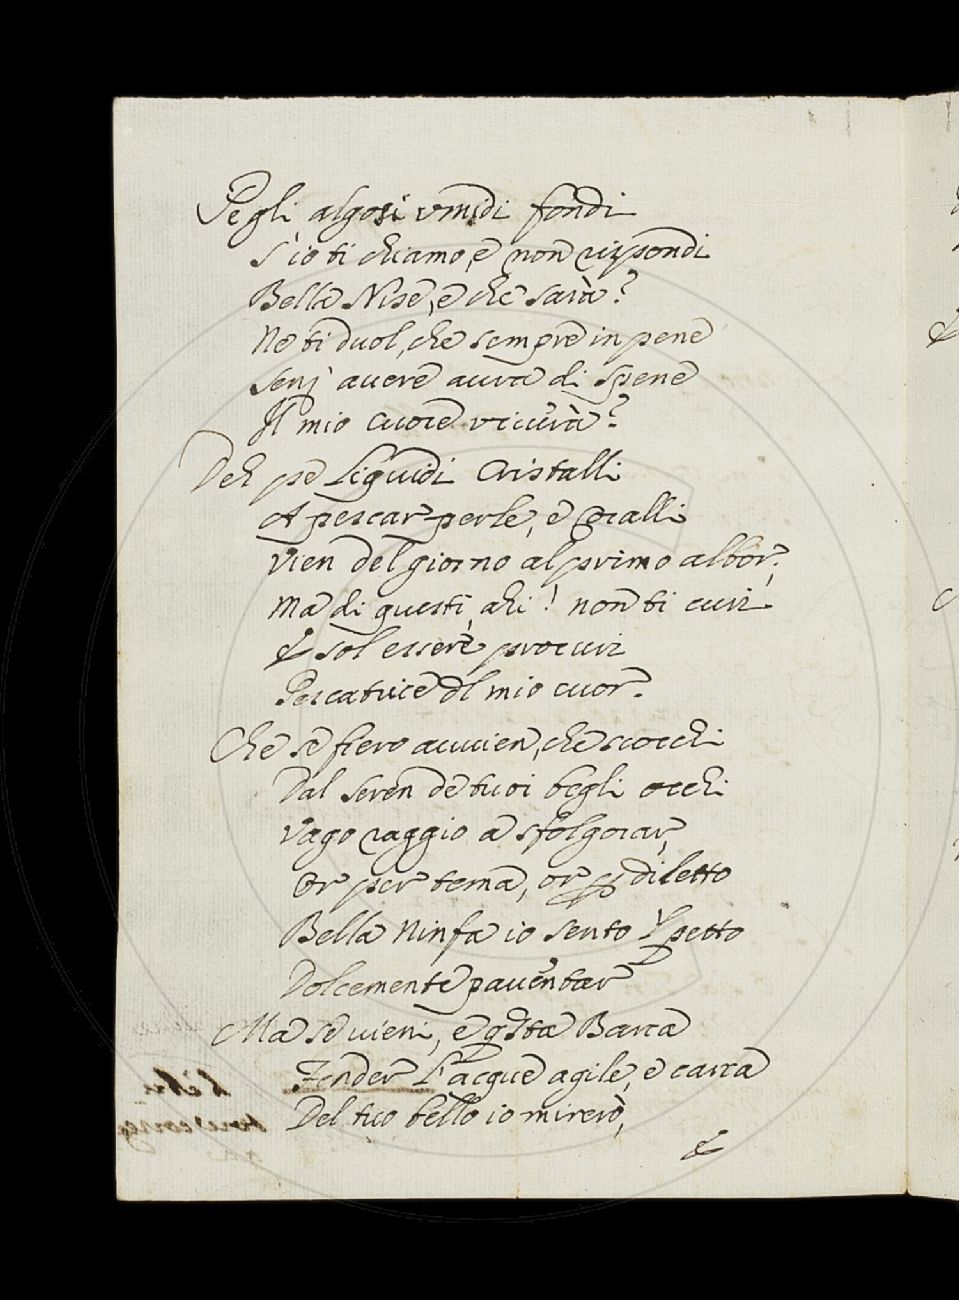 Pe gli algosi umidi fondi
S'io ti chiamo, e non rispondi
Bella Nise, e che sarà?
Ne ti duol, che sempre in pene
Senz' avere aura di spene
Il mio cuore viverà?
Deh pe Liquidi Cristalli
A pescar perle, e coralli
Vien del giorno al primo albor;
Ma di questi, ahi! non ti curi
E sol essere procuri
Pescatrice del mio cuor.
Che se fiero avvien, che scocchi
Dal seren de tuoi begli occhi
Vago raggio a sfolgorar,
Or per tema, or p diletto
Bella Ninfa io sento Il petto
Dolcemente paventar
Ma se vieni, e qsta Barca
Fender l'acque agile, e carca
Del tuo bello io mirerò,
E